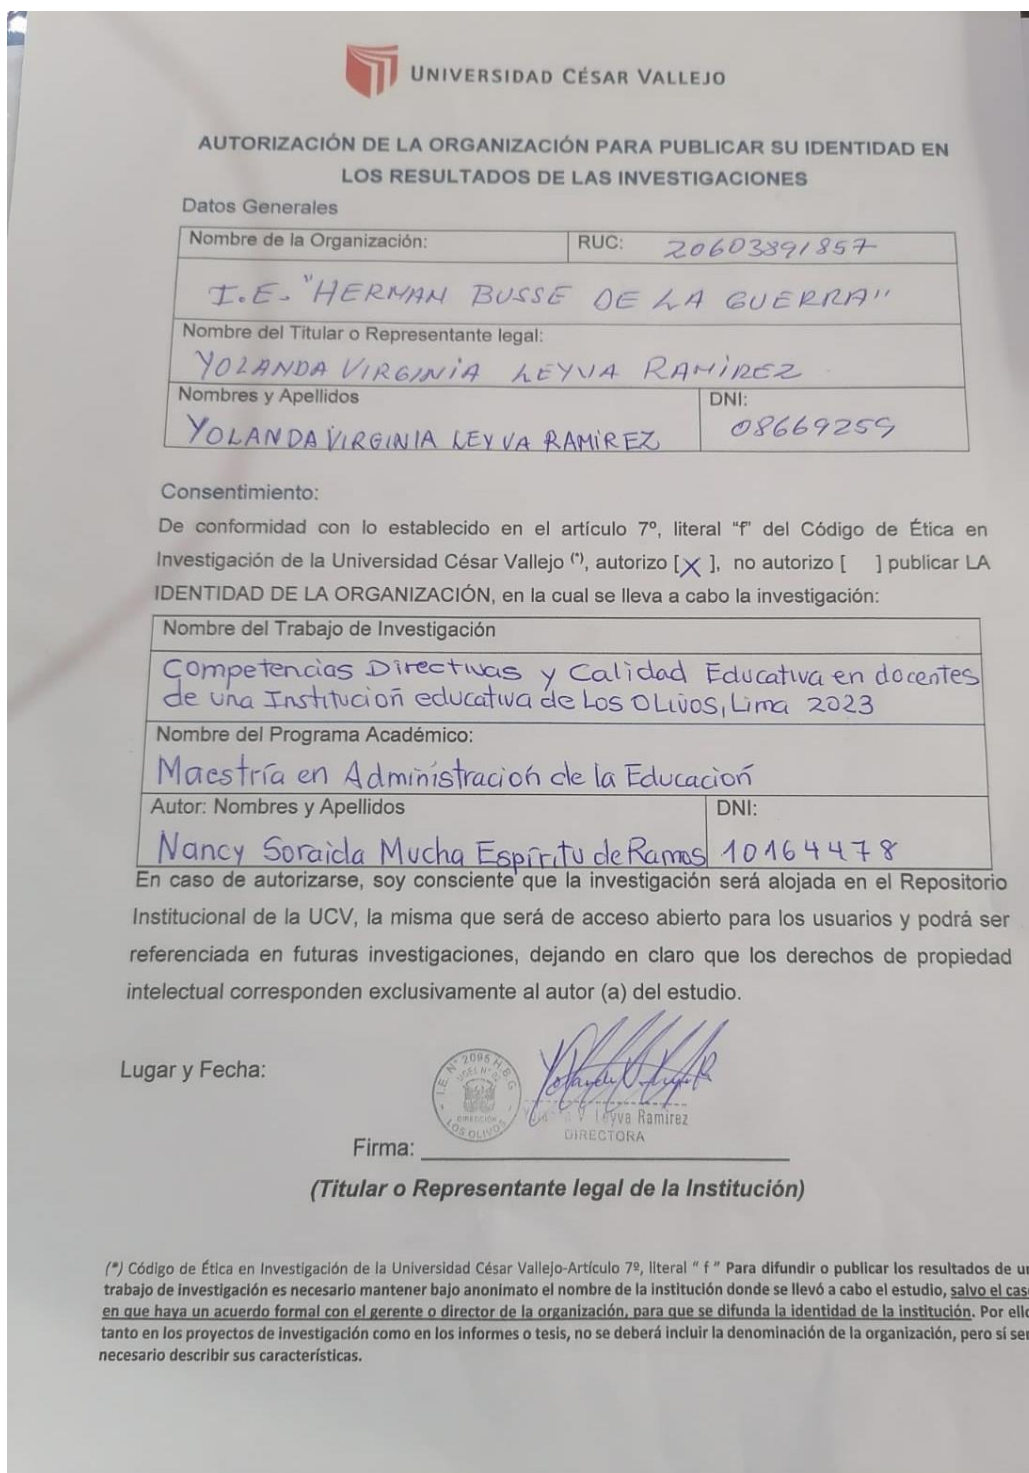 UNIVERSIDAD CÉSAR VALLEJO
AUTORIZACIÓN DE LA ORGANIZACIÓN PARA PUBLICAR SU IDENTIDAD EN
LOS RESULTADOS DE LAS INVESTIGACIONES
Datos Generales
Nombre de la Organización: RUC: 20603891857
I.E. "HERMAN BUSSE DE LA GUERRA"
Nombre del Titular o Representante legal:
YOLANDA VIRGINIA LEYVA RAMIREZ
Nombres y Apellidos DNI:
YOLANDA VIRGINIA LEYVA RAMIREZ 08669259
Consentimiento:
De conformidad con lo establecido en el artículo 7º, literal “f” del Código de Ética en
Investigación de la Universidad César Vallejo (*), autorizo [X], no autorizo [ ] publicar LA
IDENTIDAD DE LA ORGANIZACIÓN, en la cual se lleva a cabo la investigación:
Nombre del Trabajo de Investigación
Competencias Directivas y Calidad Educativa en docentes
de una Institución educativa de Los Olivos, Lima 2023
Nombre del Programa Académico:
Maestría en Administración de la Educación
Autor: Nombres y Apellidos DNI:
Nancy Soraida Mucha Espíritu de Ramos 10164478
En caso de autorizarse, soy consciente que la investigación será alojada en el Repositorio
Institucional de la UCV, la misma que será de acceso abierto para los usuarios y podrá ser
referenciada en futuras investigaciones, dejando en claro que los derechos de propiedad
intelectual corresponden exclusivamente al autor (a) del estudio.
Lugar y Fecha:
I.E. Nº 2095 H.B.G
UGEL Nº 02
DIRECCIÓN
LOS OLIVOS
V Leyva Ramirez
DIRECTORA
Firma:
(Titular o Representante legal de la Institución)
(*) Código de Ética en Investigación de la Universidad César Vallejo-Artículo 7º, literal “ f ” Para difundir o publicar los resultados de un
trabajo de investigación es necesario mantener bajo anonimato el nombre de la institución donde se llevó a cabo el estudio, salvo el caso
en que haya un acuerdo formal con el gerente o director de la organización, para que se difunda la identidad de la institución. Por ello
tanto en los proyectos de investigación como en los informes o tesis, no se deberá incluir la denominación de la organización, pero sí ser
necesario describir sus características.